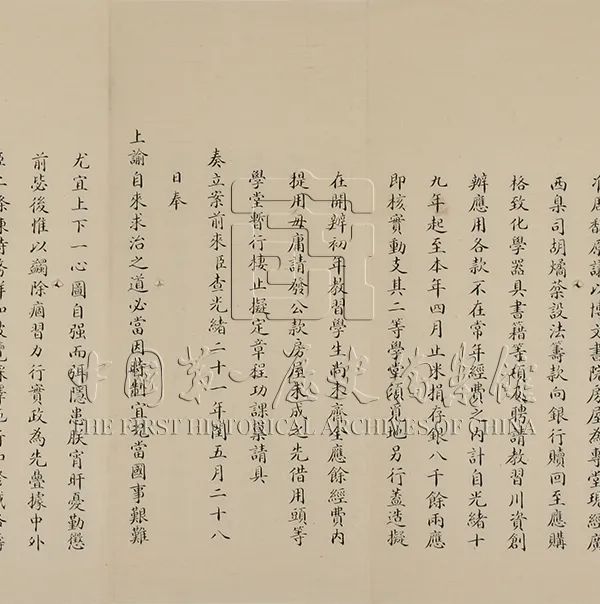 請以博文書院房屋為專堂現經廣
西臬司胡燏棻設法籌款向銀行贖回至應購
格致化學器具書籍等項及聘請教習川資創
辦應用各款不在常年經費之內計自光緒十
九年起至本年四月止米捐存銀八千餘兩應
即核實動支其二等學堂須覓地另行蓋造擬
在開辦初年教習學生尚未齊全應餘經費內
提用毋庸請發公款房屋未成之先借用頭等
學堂暫行棲止擬定章程功課稟請具
奏立案前來臣查光緒二十一年閏五月二十八
日奉
上諭自來求治之道必當因時制宜況當國事艱難
尤宜上下一心圖自強而弭隱患朕宵旰憂勤懲
前毖後惟以蠲除痼習力行實政為先疊據中外
中國第一歷史檔案館
THE FIRST HISTORICAL ARCHIVES OF CHINA